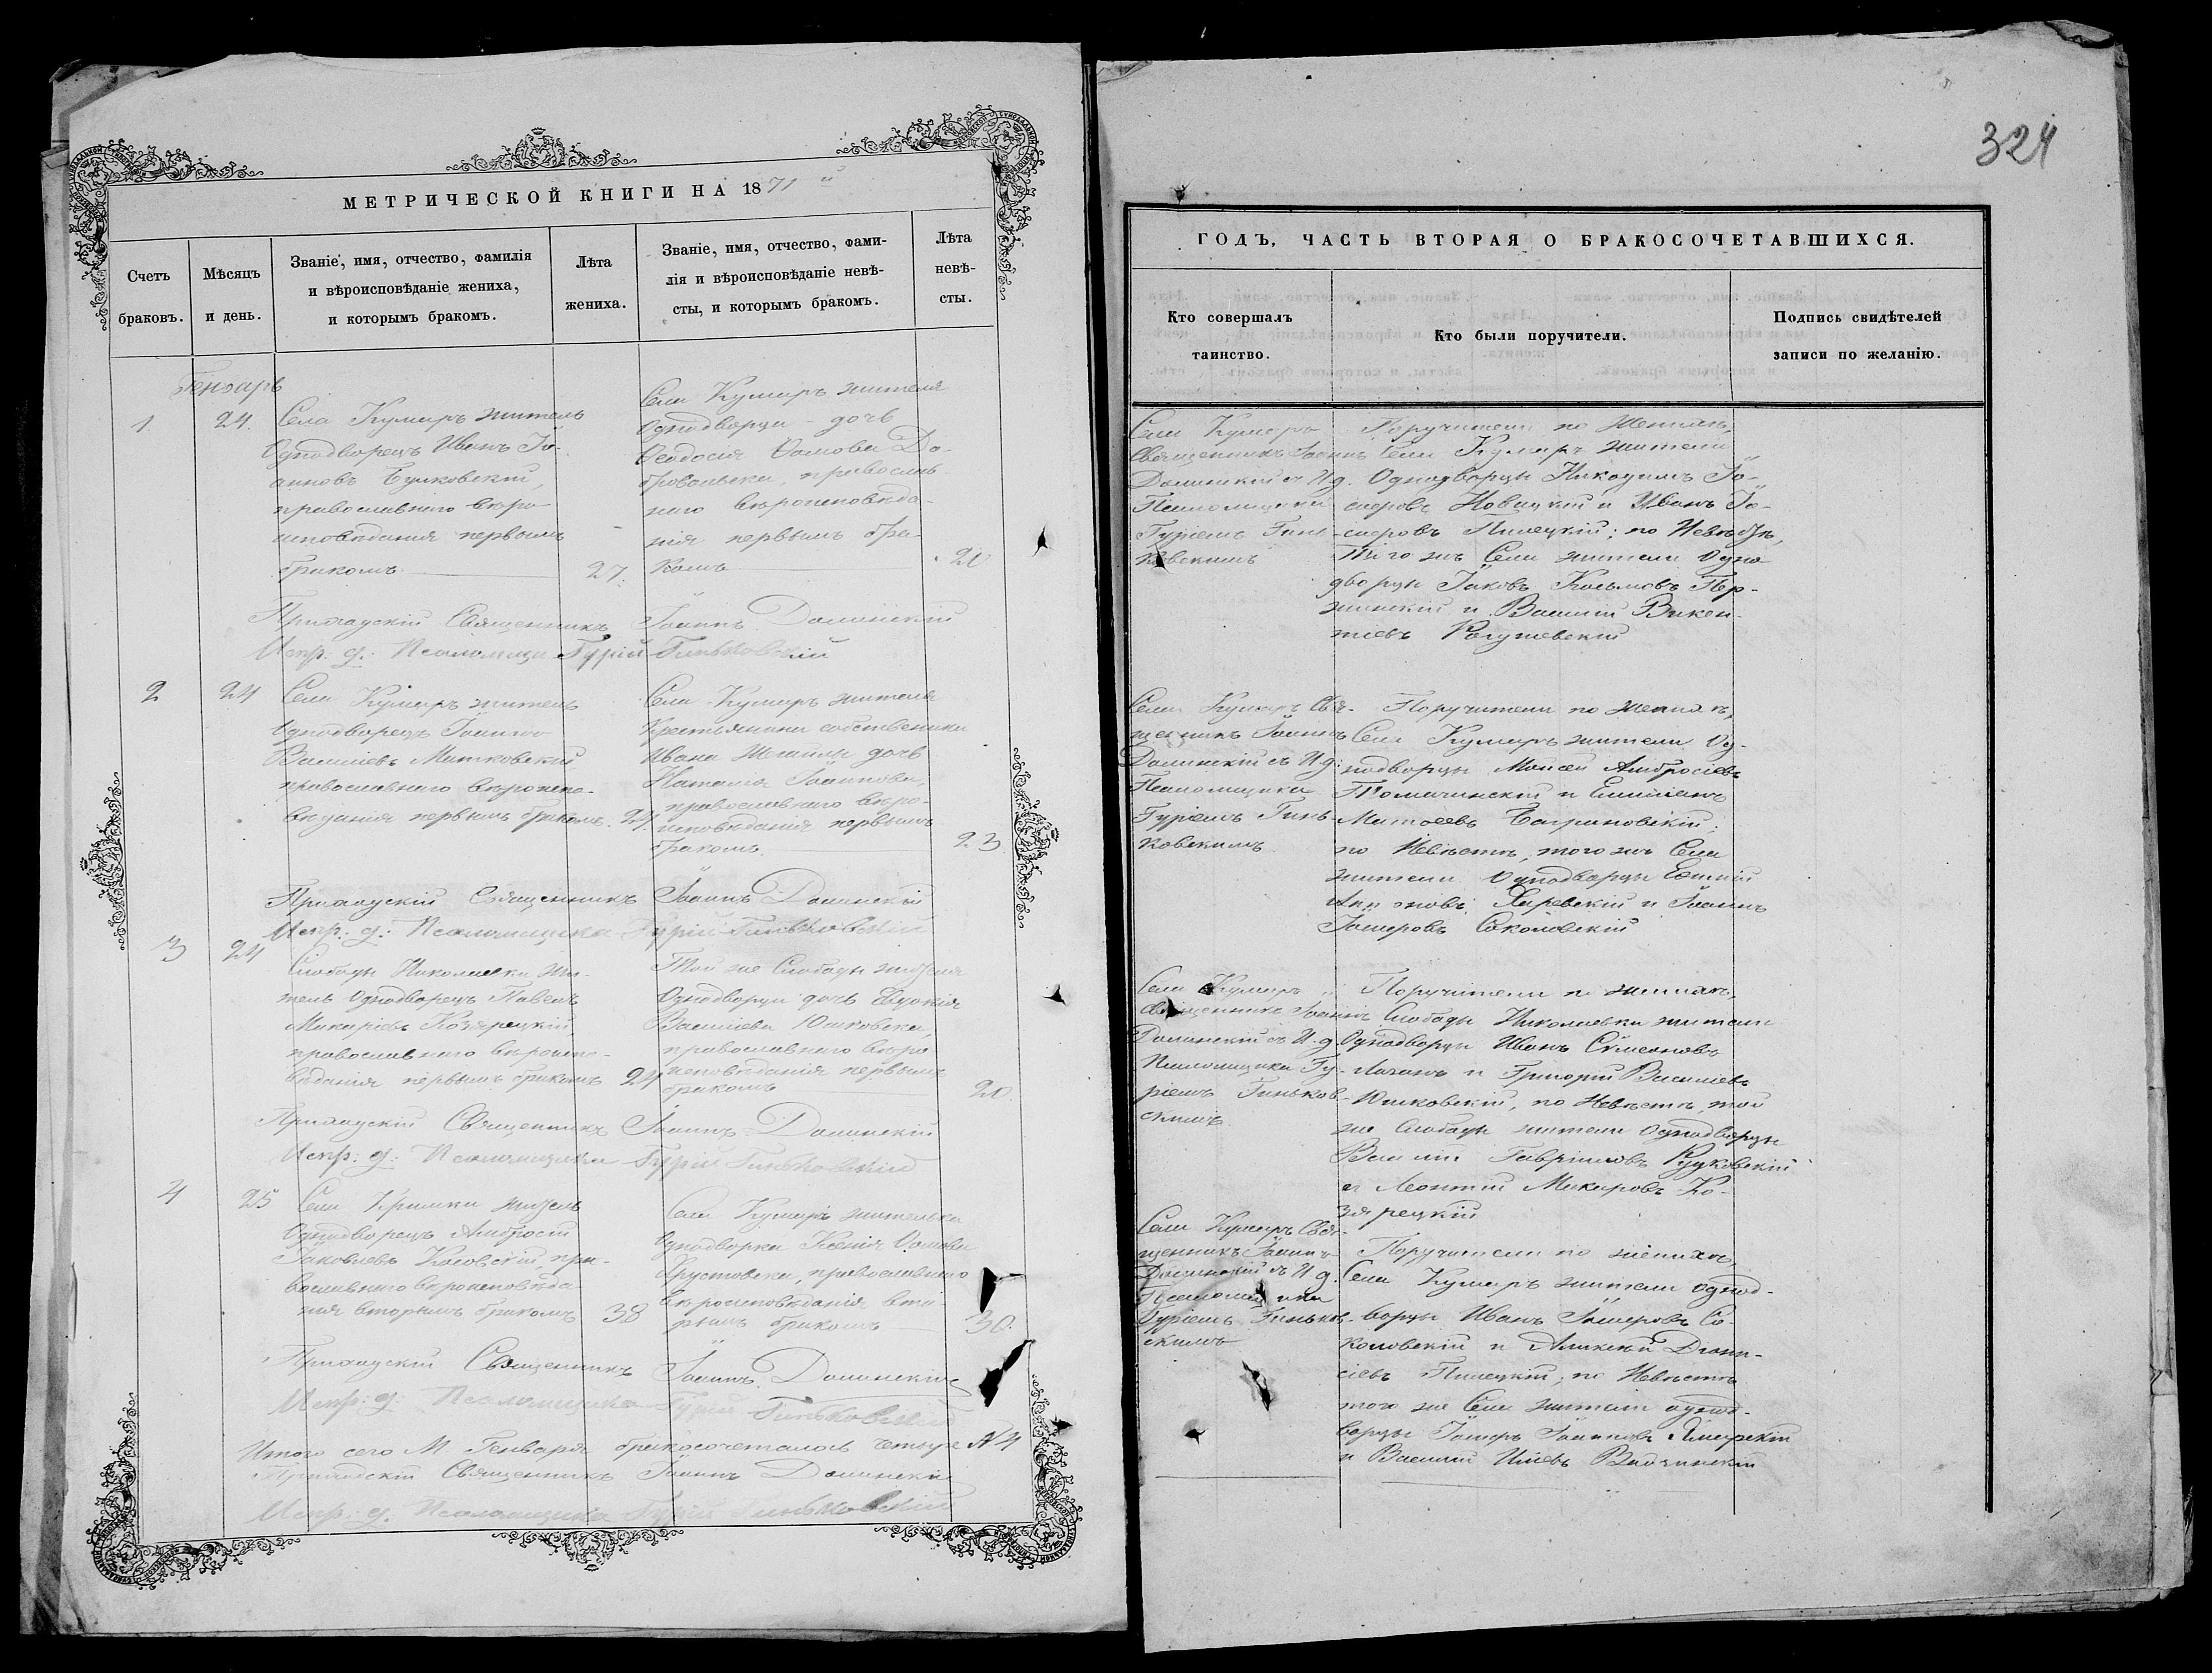 МЕТРИЧЕСКОЙ КНИГИ НА 1871 й
Счетъ браковъ.
Мѣсяцъ и день.
Званіе, имя, отчество, фамилія
и вѣроисповѣданіе жениха,
и которымъ бракомъ.
Лѣта
жениха.
Званіе, имя, отчество, фами-
лія и вѣроисповѣданіе невѣ-
сты, и которымъ бракомъ.
Лѣта
невѣ-
сты.
Генварь
1.
24.
Села Кумаръ житель
Однодворецъ Иванъ Іо-
анновъ
православнаго вѣро-
исповѣданія первымъ
бракомъ
27.
Села Кумаръ жителя
Однодворца - дочь
Ѳеодосія Ѳомова До-
бровольска, православ-
наго вѣроисповѣда-
нія первымъ бра-
комъ
20
Приходскій Священникъ Іоаннъ Долинскій
Испр: д: Псаломщ Гурій Гиньковскій
2
24
Села Кумаръ житель
Однодворецъ Іоаннъ
Василіевъ Митковскій
православнаго вѣроиспо-
вѣданія первымъ бракомъ.
24.
Села Кумаръ жителя
Крестьянина собственника
Ивана дочь
Наталія Іоаннова,
православнаго вѣро-
исповѣданія первымъ
бракомъ
23.
Приходскій Священникъ Іоаннъ Долинскій
Испр: д: Псаломщика Гурій Гиньковскій
3
24
Слободы Николаевки жи-
тель Однодворецъ Павелъ
Макаріевъ Козярецкій
православнаго вѣроиспо-
вѣданія первымъ бракомъ
24
Той же Слободы жителя
Однодворца дочь Евдокія
Василіева Юшковска,
православнаго вѣро
исповѣданія первымъ
бракомъ
20.
Приходскій Священникъ Іоаннъ Долинскій
Испр: д: Псаломщика Гурій Гиньковскій
4
25
Села Кримки житель
Однодворецъ Амбросій
Іаковлевъ пра-
вославнаго вѣроисповѣда-
нія вторымъ бракомъ
38
Села Кумаръ жителька
Однодворка Ксенія Ѳомова
Хрустовска, православнаго
вѣроисповѣданія вто-
рымъ бракомъ
30.
Приходскій Священникъ Іоаннъ Долинскій
Испр: д: Псаломщика Гурій Гиньковскій
Итого сего М. Генваря бракосочеталось четыре № 4
Приходскій Священникъ Іоаннъ Долинскій
Испр: д. Псаломщика Гурій Гиньковскій
324
ГОДЪ, ЧАСТЬ ВТОРАЯ О БРАКОСОЧЕТАВШИХСЯ.
Кто совершалъ
таинство.
Кто были поручители.
Подпись свидѣтелей
записи по желанію.
Села Кумаръ
Священникъ Іоаннъ
Долинскій съ И д.
Псаломщика
Гуріемъ Гинь-
ковскимъ
Поручители по Женихѣ,
Села Кумаръ жители
Однодворцы Никодимъ Іо-
сифовъ Новицкій и Иванъ Іо-
сифовъ Пилецкій; по Невѣстѣ,
того жъ Села жители Одно
дворцы Іаковъ Космовъ Пер-
жинскій и Василій Викен-
тіевъ
Села Кумаръ Свя-
щенникъ Іоаннъ
Долинскій съ И д:
Псаломщика
Гуріемъ Гинь-
ковскимъ
Поручители по женихѣ,
Села Кумаръ жители Од-
нодворцы Моисей Амбросіевъ
Томачинскій и Емиліанъ
Матѳеевъ Багриновскій:
по Невѣстѣ, того жъ Села
жители Однодворцы
и Іоаннъ
Іосифовъ Соколовскій
Села Кумаръ
Священникъ Іоаннъ
Долинскій съ И. д.
Псаломщика Гу-
ріемъ Гиньков-
скимъ
Поручители по женихѣ,
Слободы Николаевки жители
Однодворцы Иванъ Симеоновъ
и Григорій Василіевъ
Юшковскій, по Невѣстѣ, той
же Слободы жители Однодворцы
Василій Гавріиловъ
и Леонтій Макаровъ Ко-
зярецкій
Села Кумаръ Свя-
щенникъ Іоаннъ
Долинскій съ И д.
Псаломщика
Гуріемъ Гиньков-
скимъ
Поручители по женихѣ,
Села Кумаръ жители однод-
ворцы Иванъ Іосифовъ Со-
коловскій и Алексѣй Діони-
сіевъ Пилецкій; по Невѣстѣ
того же Села жители однод-
ворцы Іосифъ Іоанновъ
и Василій Иліевъ